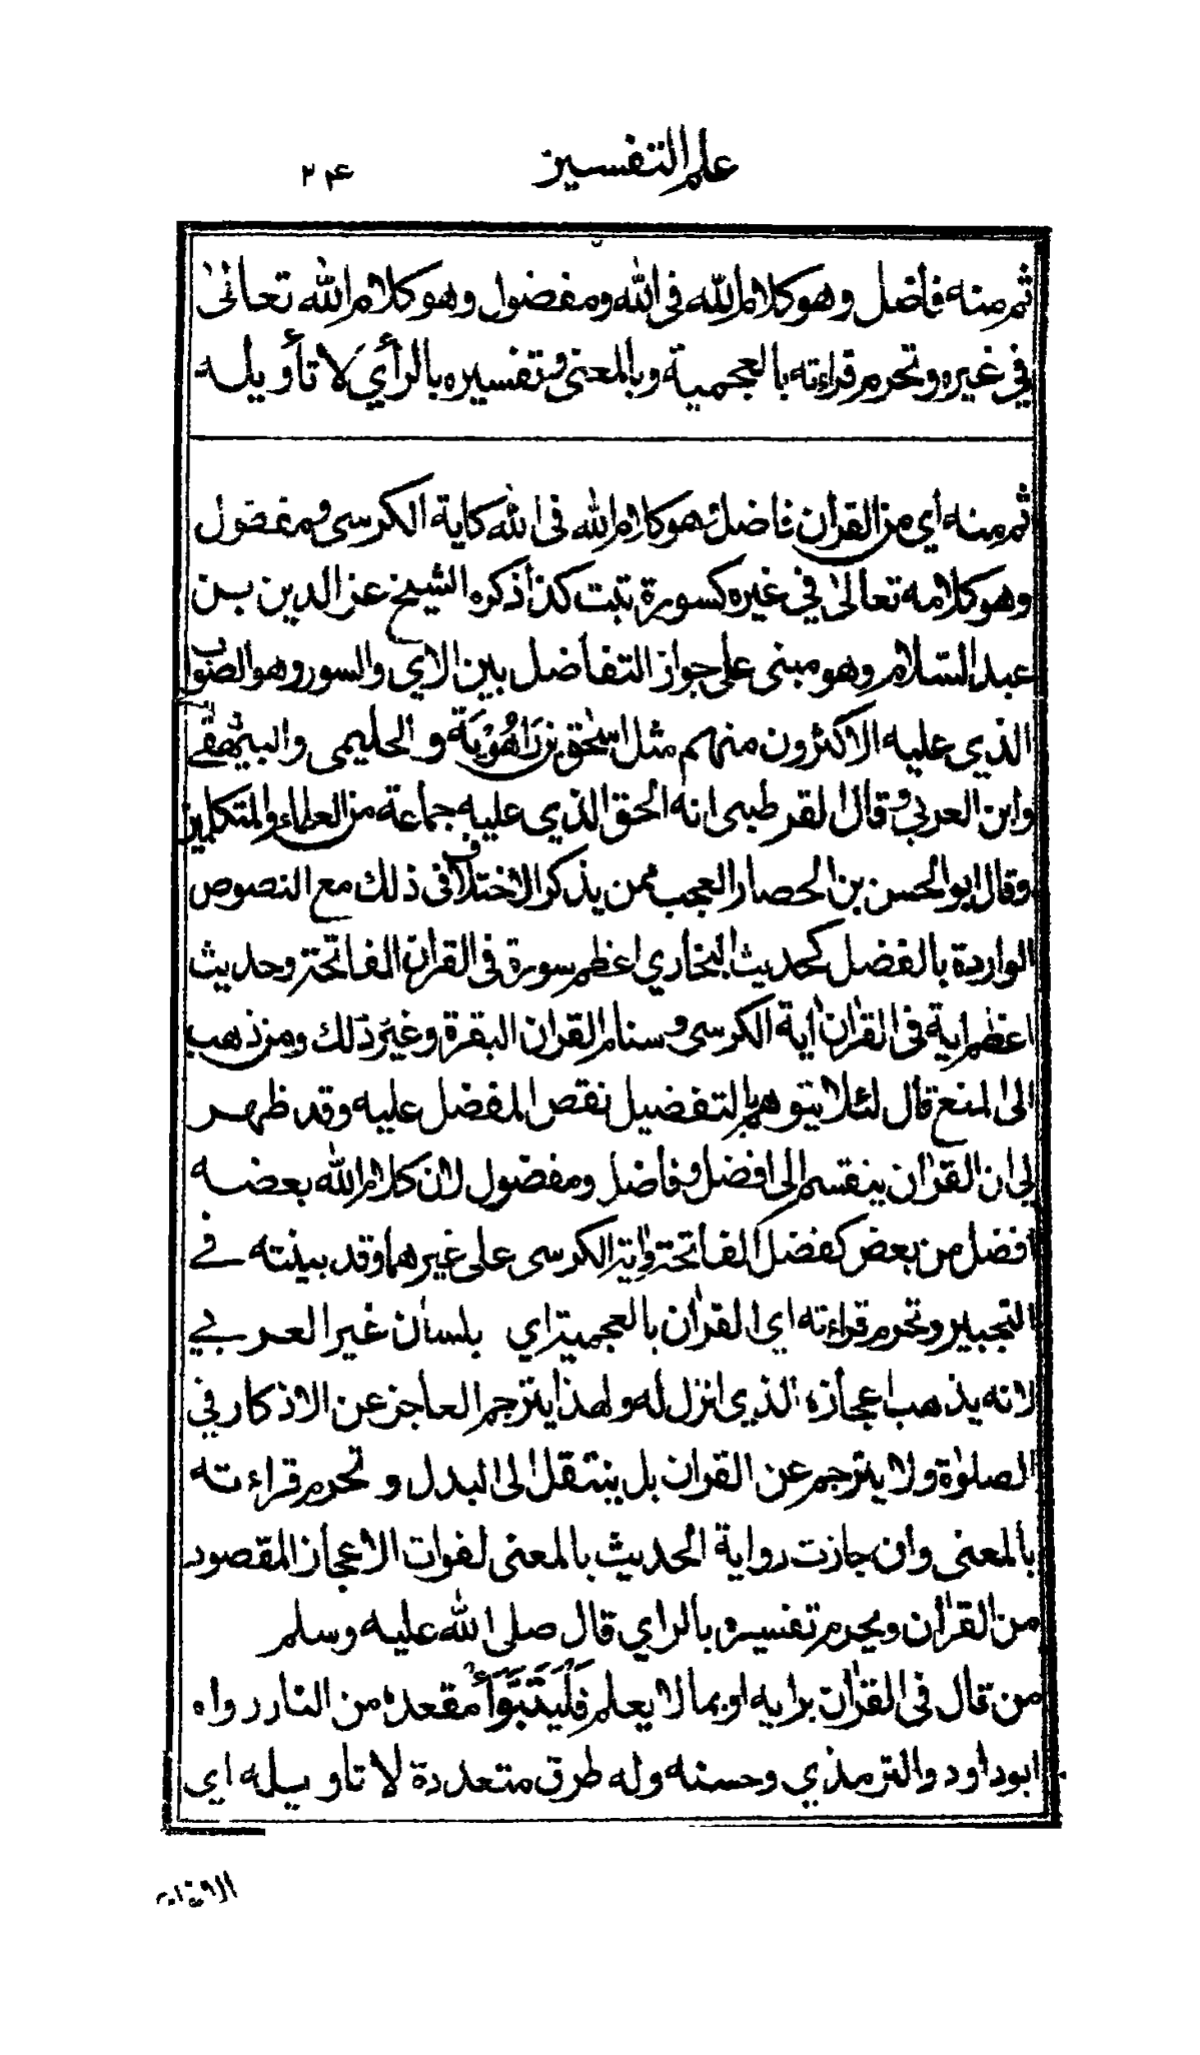 علم التفسير ۲۴
ثم منه فاضل وهو كلام الله في الله ومفضول وهو كلام الله تعالىٰ
في غيره وتحرم قراءته بالعجمية وبالمعنى وتفسيره بالرأي لا تأويله
ثم منه أي من القرأن فاضل وهو كلام الله في الله كاية الكرسي ومفضول
وهو كلامه تعالىٰ في غيره كسورة تبت كذا ذكره الشيخ عز الدين بن
عبد السلام وهو مبني على جواز التفاضل بين الاي والسور وهو الصواب
الذي عليه الاكثرون منهم مثل اسحٰق بن رَاهُوْيَة و الحليمي والبيهقي
وابن العربي وقال القرطبي انه الحق الذي عليه جماعة من العلماء والمتكلمين
وقال ابو الحسن بن الحصار العجب ممن يذكر الاختلاف في ذلك مع النصوص
الواردة بالفضل كحديث البخاري اعظم سورة في القران الفاتحة وحديث
اعظم اية في القراٰن اٰية الكرسي و سنام القران البقرة وغير ذلك ومن ذهب
الى المنع قال لئلا يتوهم بالتفضيل نقص المفضل عليه وقد ظهر
لي ان القراٰن ينقسم الى افضل وفاضل ومفضول لان كلام الله بعضه
افضل من بعض كفضل الفاتحة واٰية الكرسي على غيرهما وقد بينته في
التحبير وتحرم قراءته اي القراٰن بالعجمية اي بلسان غير العربي
لانه يذهب اعجازه الذي انزل له ولهذا يترجم العاجز عن الاذكار في
الصلوٰة ولا يترجم عن القران بل ينتقل الى البدل و تحرم قراءته
بالمعنى وان جازت رواية الحديث بالمعنى لفوات الاعجاز المقصود
من القراٰن ويحرم تفسيره بالراي قال صلى الله عليه وسلم
من قال في القراٰن برايه او بما لا يعلم فَلْيَتَبَوَّأْ مقعده من النار رواه
ابوداود والترمذي وحسنه وله طرق متعددة لا تاويله اي